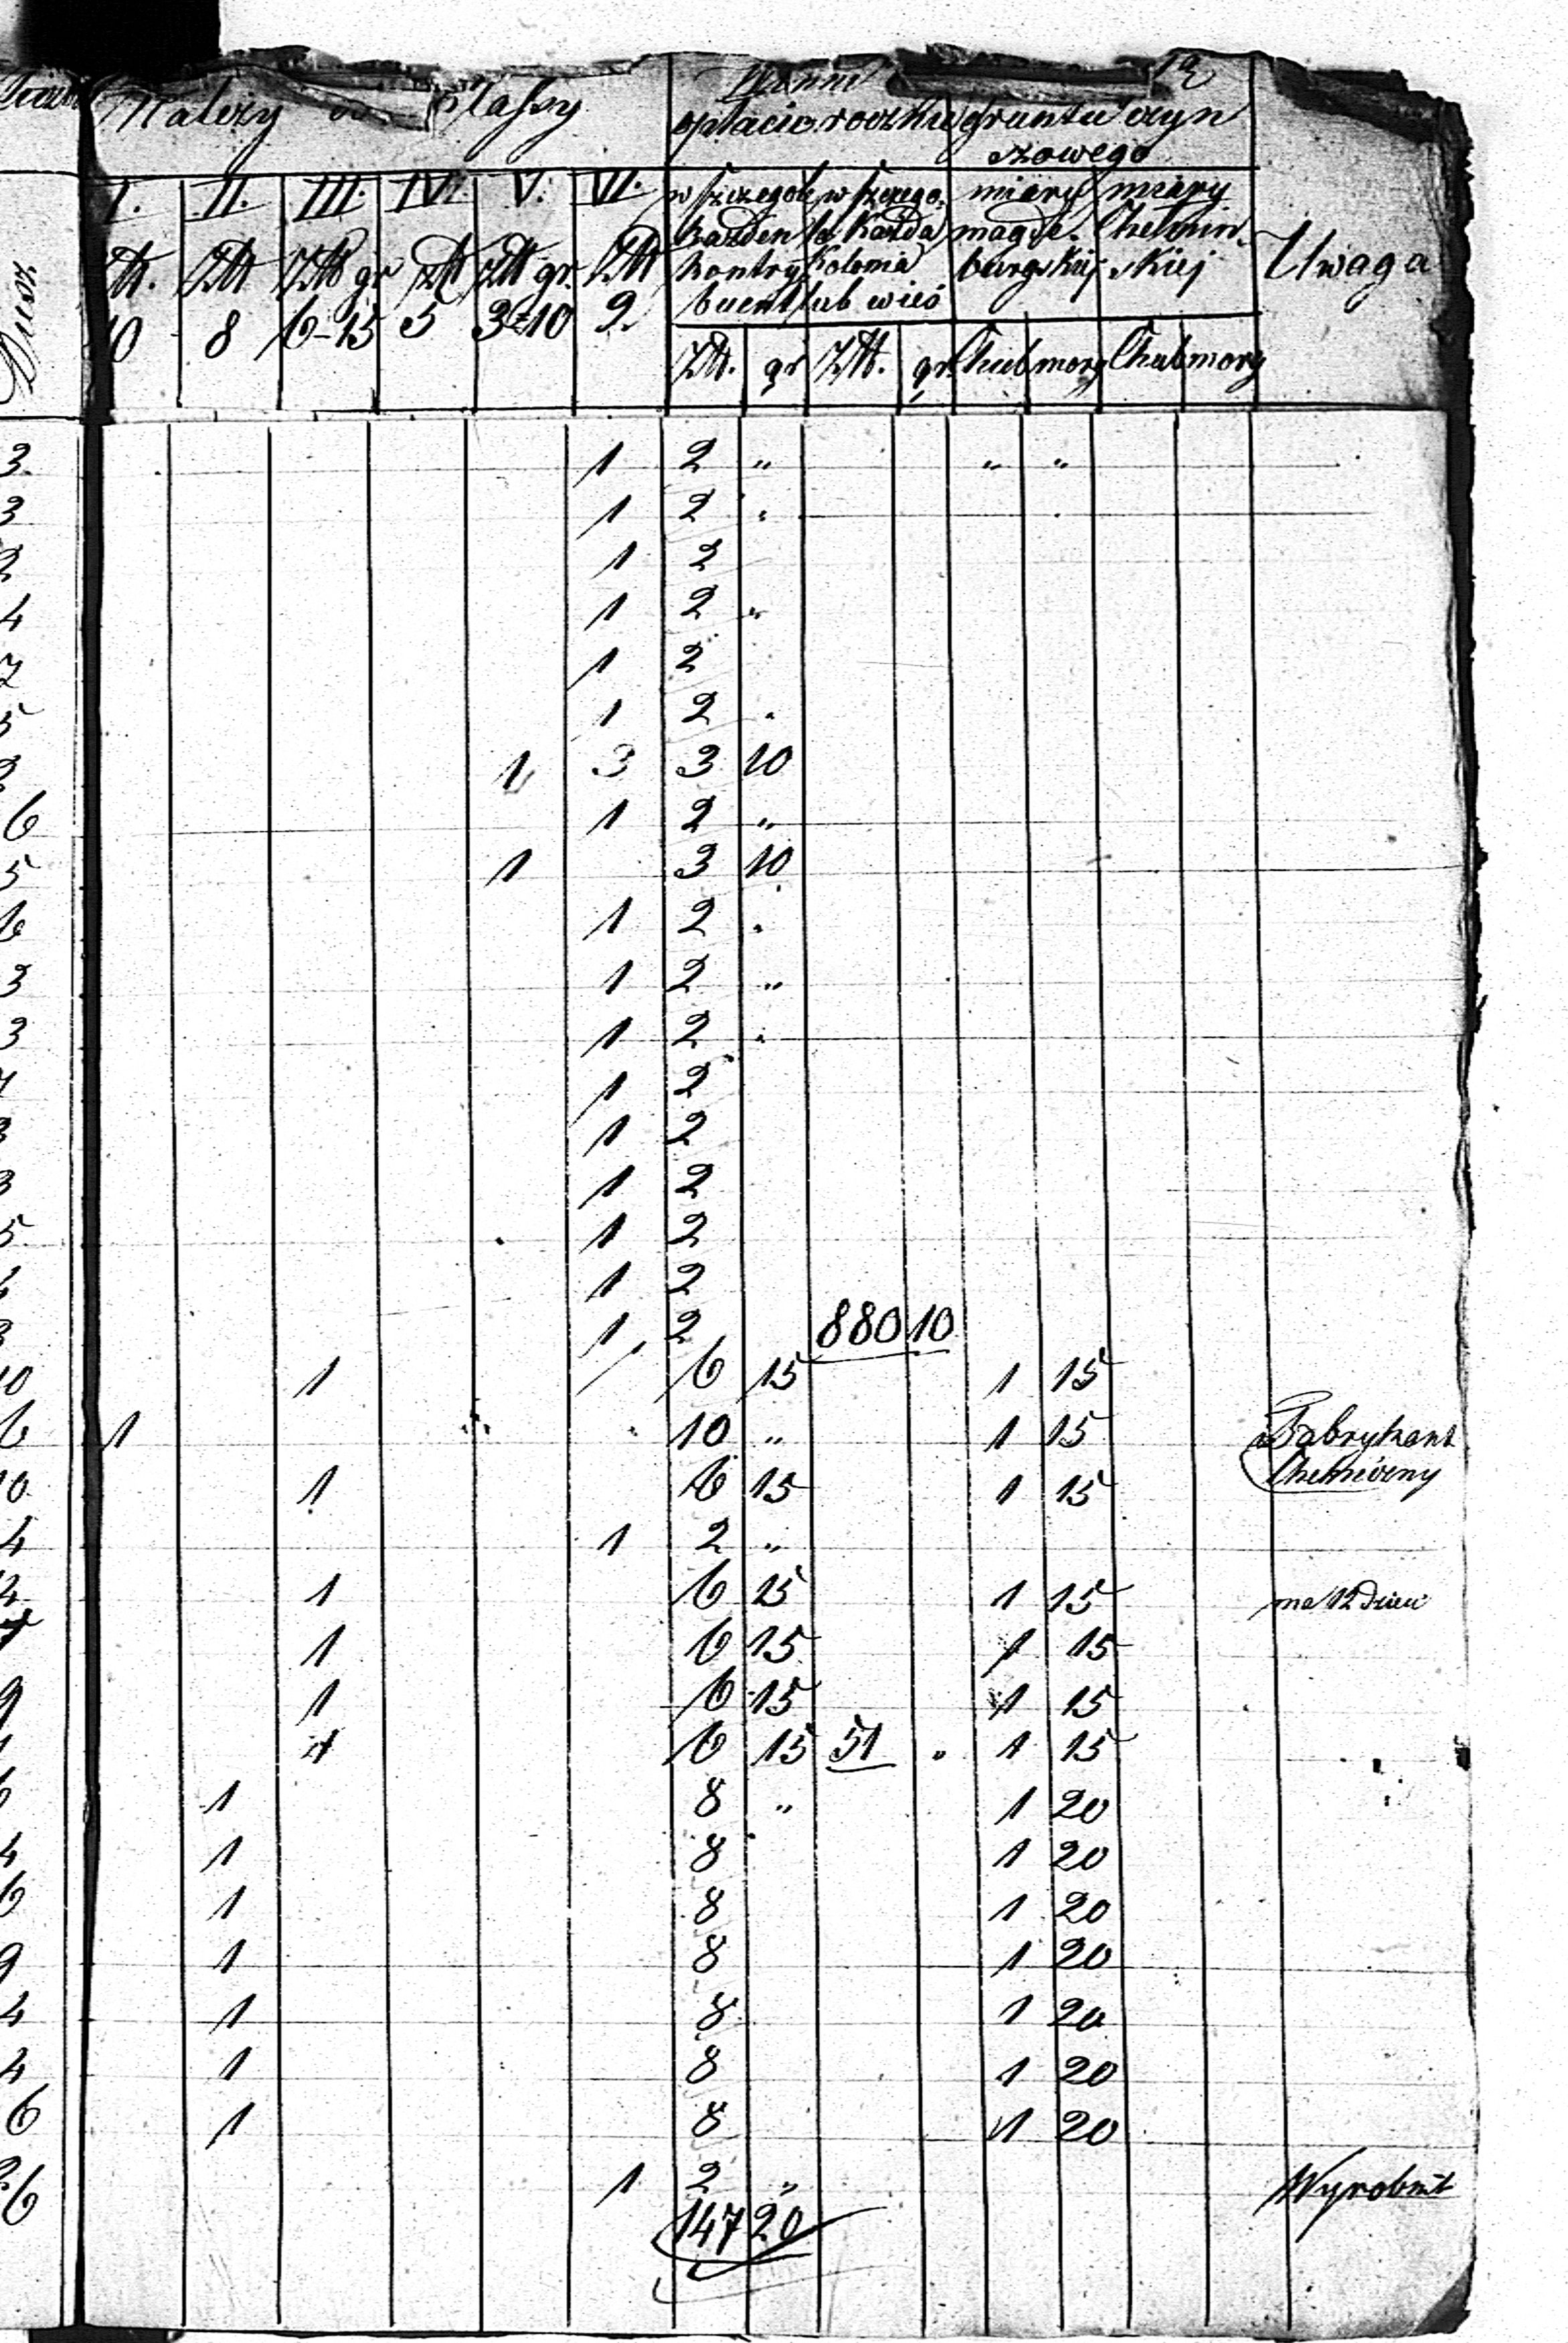 Należy do Klassy
opłacić roczkie gruntu czyn
szowego
I. II. III. IV. V. VI. w szczegole w szczego. miary miary
każden le każda magde. Chełmin.
Ztt. Ztt Ztt gr ztt ztt gr. Ztt kontry Kolonia burgskiej skiej Uwaga
10 8 6-15 5 3-10 2. buent lub wieś
Dusz Ztt. gr Ztt. gr. Chub morg Chub morg
3. 1 2 " " "
3 1 2 "
2 1 2
4 1 2 "
7 1 2
5 1 2 .
2 1 3 3 10
6 1 2 "
5 1 3 10
6 1 2 .
3 1 2 "
3 1 2 .
1 2
3 1 2
3 1 2
5 1 2
1 2
3 1 2 880 10
10 1 6 15 1 15
6 1 10 " 1 15 Fabrykant
10 1 6 15 1 15 Chemiczny
4 1 2 "
1 6 15 1 15 ma 12 Dzieci
1 6 15 1 15
9 1 6 15 1 15
1 6 15 51 " 1 15
6 1 8 " 1 20
4 1 8 1 20
6 1 8 1 20
9 1 8 1 20
4 1 8 1 20
4 1 8 1 20
6 1 8 1 20
6 1 2 " Wyrobnik
147 20